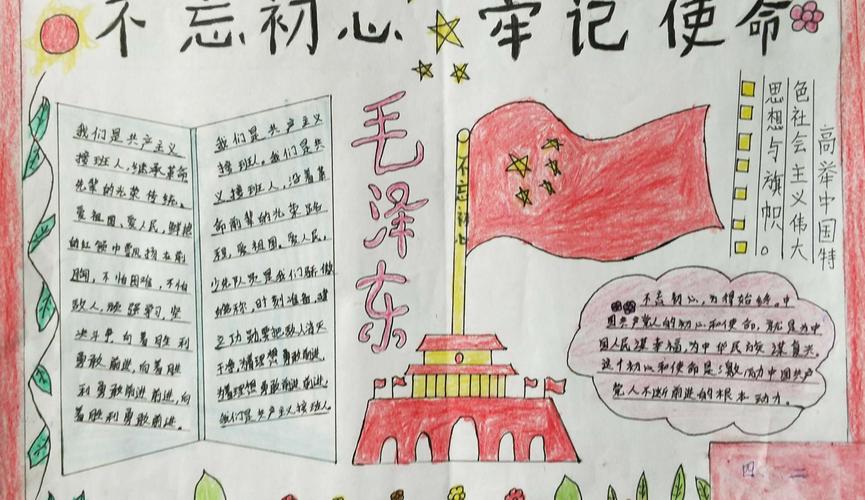 不忘初心 牢记使命
我们是共产主义
接班人,继承革命
先辈的光荣传统。
爱祖国、爱人民,鲜艳
的红领巾飘扬在前
胸,不怕困难,不怕
敌人,顽强学习,坚
决斗争,向着胜利
勇敢前进,向着胜
利勇敢前进前进,向
着胜利勇敢前进。
我们是共产主义
接班人。我们是共
义接班人,沿着革
命前辈的光荣路
程,爱祖国、爱人民,
少先队员是我们骄傲
的名称,时刻准备,建
立功勋要把敌人消灭
干净,为着理想勇敢前进,
为着理想勇敢前进前进,
我们是共产主义接班人。
毛泽东
不忘初心
高举中国特
色社会主义伟大
思想与旗帜。
不忘初心,方得始终。中
国共产党人的初心和使命,就是为中
国人民谋幸福,为中华民族谋复兴。
这个初心和使命是激励中国共产
党人不断前进的根本动力。
四 二